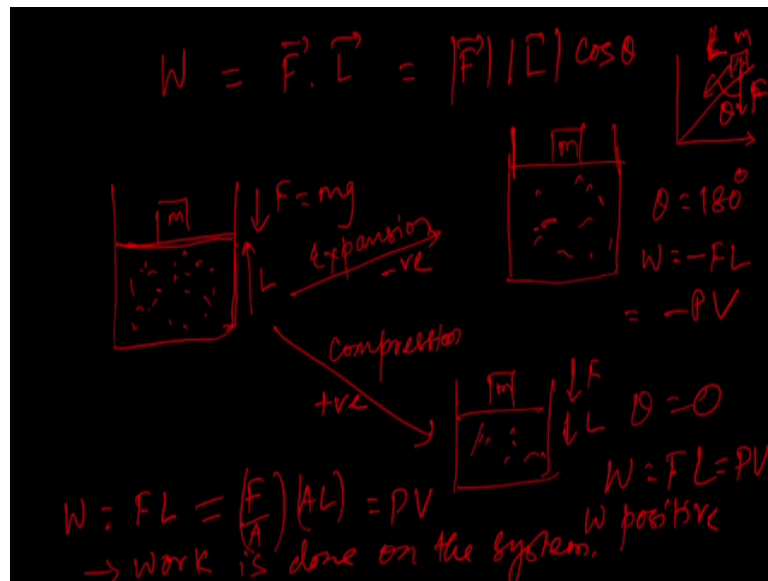 W = F⃗ . L⃗ = |F⃗| |L⃗| cosθ
m
θ F
m
F = mg
L
Expansion
-ve
m
θ = 180°
W = -FL
= -PV
Compression
+ve
m
F
L
θ = 0
W = FL = PV
W positive
W = FL = (F/A) (AL) = PV
→ Work is done on the system.